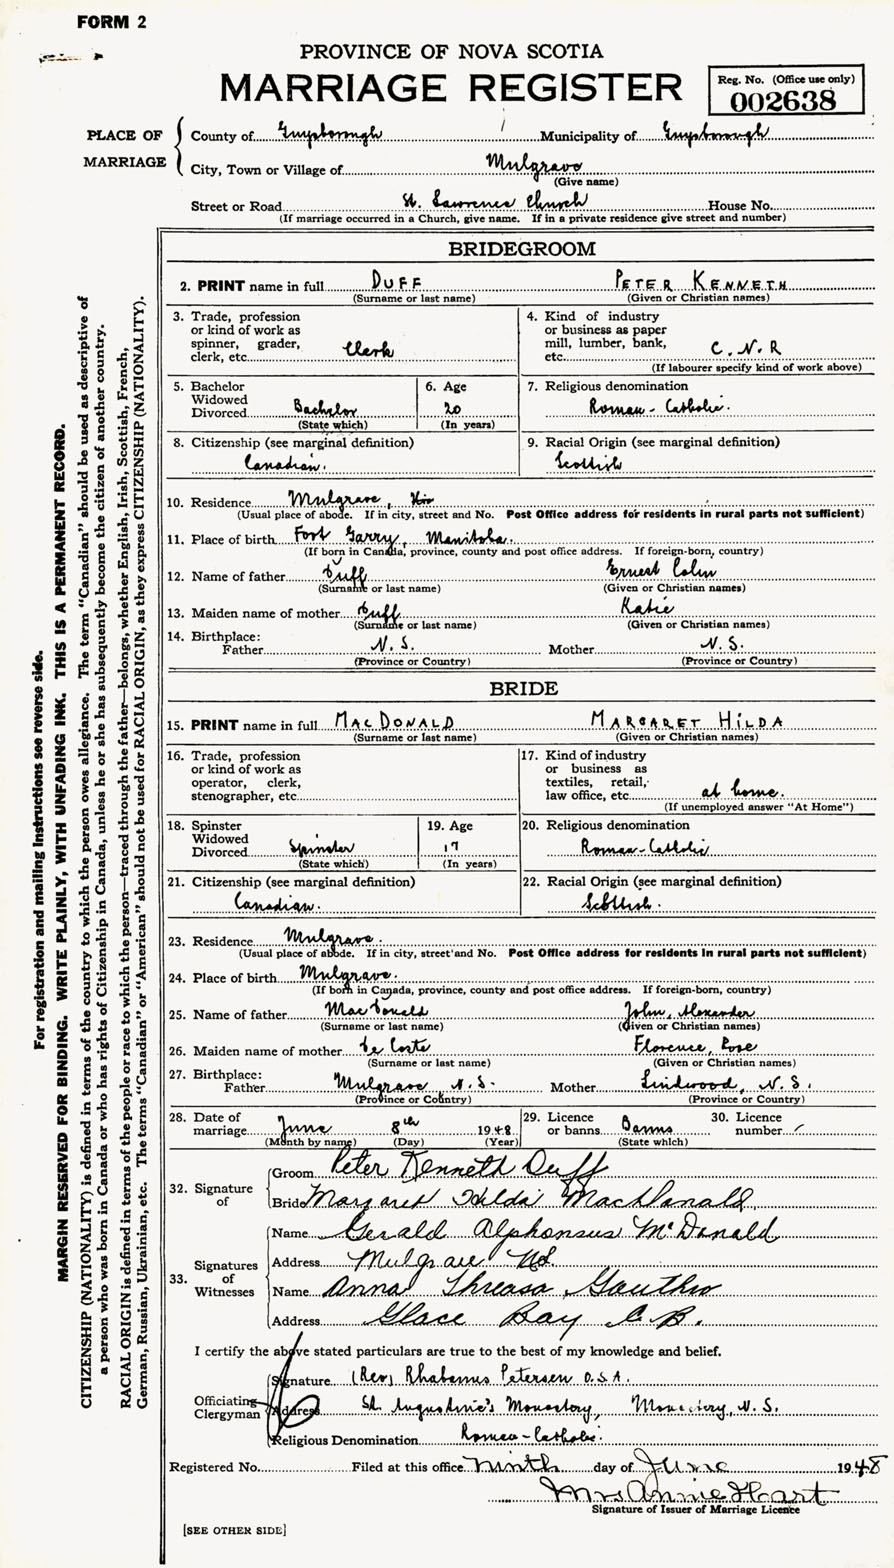 FORM 2
PROVINCE OF NOVA SCOTIA
MARRIAGE REGISTER
Reg. No. (Office use only)
002638
PLACE OF MARRIAGE
County of Guysborough Municipality of Guysborough
City, Town or Village of Mulgrave
(Give name)
Street or Road St. Lawrence Church House No.
(If marriage occurred in a Church, give name. If in a private residence give street and number)
BRIDEGROOM
2. PRINT name in full DUFF PETER KENNETH
(Surname or last name) (Given or Christian names)
3. Trade, profession or kind of work as spinner, grader, clerk, etc. Clerk
4. Kind of industry or business as paper mill, lumber, bank, etc. C.N.R
(If labourer specify kind of work above)
5. Bachelor Widowed Divorced Bachelor
(State which)
6. Age 20
(In years)
7. Religious denomination
Roman-Catholic.
8. Citizenship (see marginal definition)
Canadian.
9. Racial Origin (see marginal definition)
Scottish
10. Residence Mulgrave,
(Usual place of abode. If in city, street and No. Post Office address for residents in rural parts not sufficient)
11. Place of birth Fort Garry, Manitoba.
(If born in Canada, province, county and post office address. If foreign-born, country)
12. Name of father Duff Ernest Colin
(Surname or last name) (Given or Christian names)
13. Maiden name of mother Duff Katie
(Surname or last name) (Given or Christian names)
14. Birthplace:
Father N.S. Mother N.S.
(Province or Country) (Province or Country)
BRIDE
15. PRINT name in full MACDONALD MARGARET HILDA
(Surname or last name) (Given or Christian names)
16. Trade, profession or kind of work as operator, clerk, stenographer, etc.
17. Kind of industry or business as textiles, retail, law office, etc. at home.
(If unemployed answer "At Home")
18. Spinster Widowed Divorced Spinster
(State which)
19. Age 17
(In years)
20. Religious denomination
Roman-Catholic
21. Citizenship (see marginal definition)
Canadian.
22. Racial Origin (see marginal definition)
Scottish.
23. Residence Mulgrave.
(Usual place of abode. If in city, street and No. Post Office address for residents in rural parts not sufficient)
24. Place of birth Mulgrave.
(If born in Canada, province, county and post office address. If foreign-born, country)
25. Name of father MacDonald John, Alexander
(Surname or last name) (Given or Christian names)
26. Maiden name of mother De Coste Florence, Rose
(Surname or last name) (Given or Christian names)
27. Birthplace:
Father Mulgrave, N.S. Mother Lindwood, N.S.
(Province or Country) (Province or Country)
28. Date of marriage June 8th 1948.
(Month by name) (Day) (Year)
29. Licence or banns Banns
(State which)
30. Licence number
32. Signature of
Groom Peter Kenneth Duff
Bride Margaret Hilda MacDonald
33. Signatures of Witnesses
Name Gerald Alphonsus McDonald
Address Mulgrave NS.
Name Anna Threasa
Address Glace Bay C.B.
I certify the above stated particulars are true to the best of my knowledge and belief.
Officiating Clergyman
Signature (Rev) Rhabanus Petersen O.S.A.
Address St. Augustine's Monastery, Monastery, N.S.
Religious Denomination Roman-Catholic.
Registered No. Filed at this office ninth day of June 1948
Mrs Annie Hart
Signature of Issuer of Marriage Licence
[SEE OTHER SIDE]
For registration and mailing instructions see reverse side.
MARGIN RESERVED FOR BINDING. WRITE PLAINLY, WITH UNFADING INK. THIS IS A PERMANENT RECORD.
CITIZENSHIP (NATIONALITY) is defined in terms of the country to which the person owes allegiance. The term "Canadian" should be used as descriptive of
a person who was born in Canada or who has rights of Citizenship in Canada, unless he or she has subsequently become the citizen of another country.
RACIAL ORIGIN is defined in terms of the people or race to which the person—traced through the father—belongs, whether English, Irish, Scottish, French,
German, Russian, Ukrainian, etc. The terms "Canadian" or "American" should not be used for RACIAL ORIGIN, as they express CITIZENSHIP (NATIONALITY).